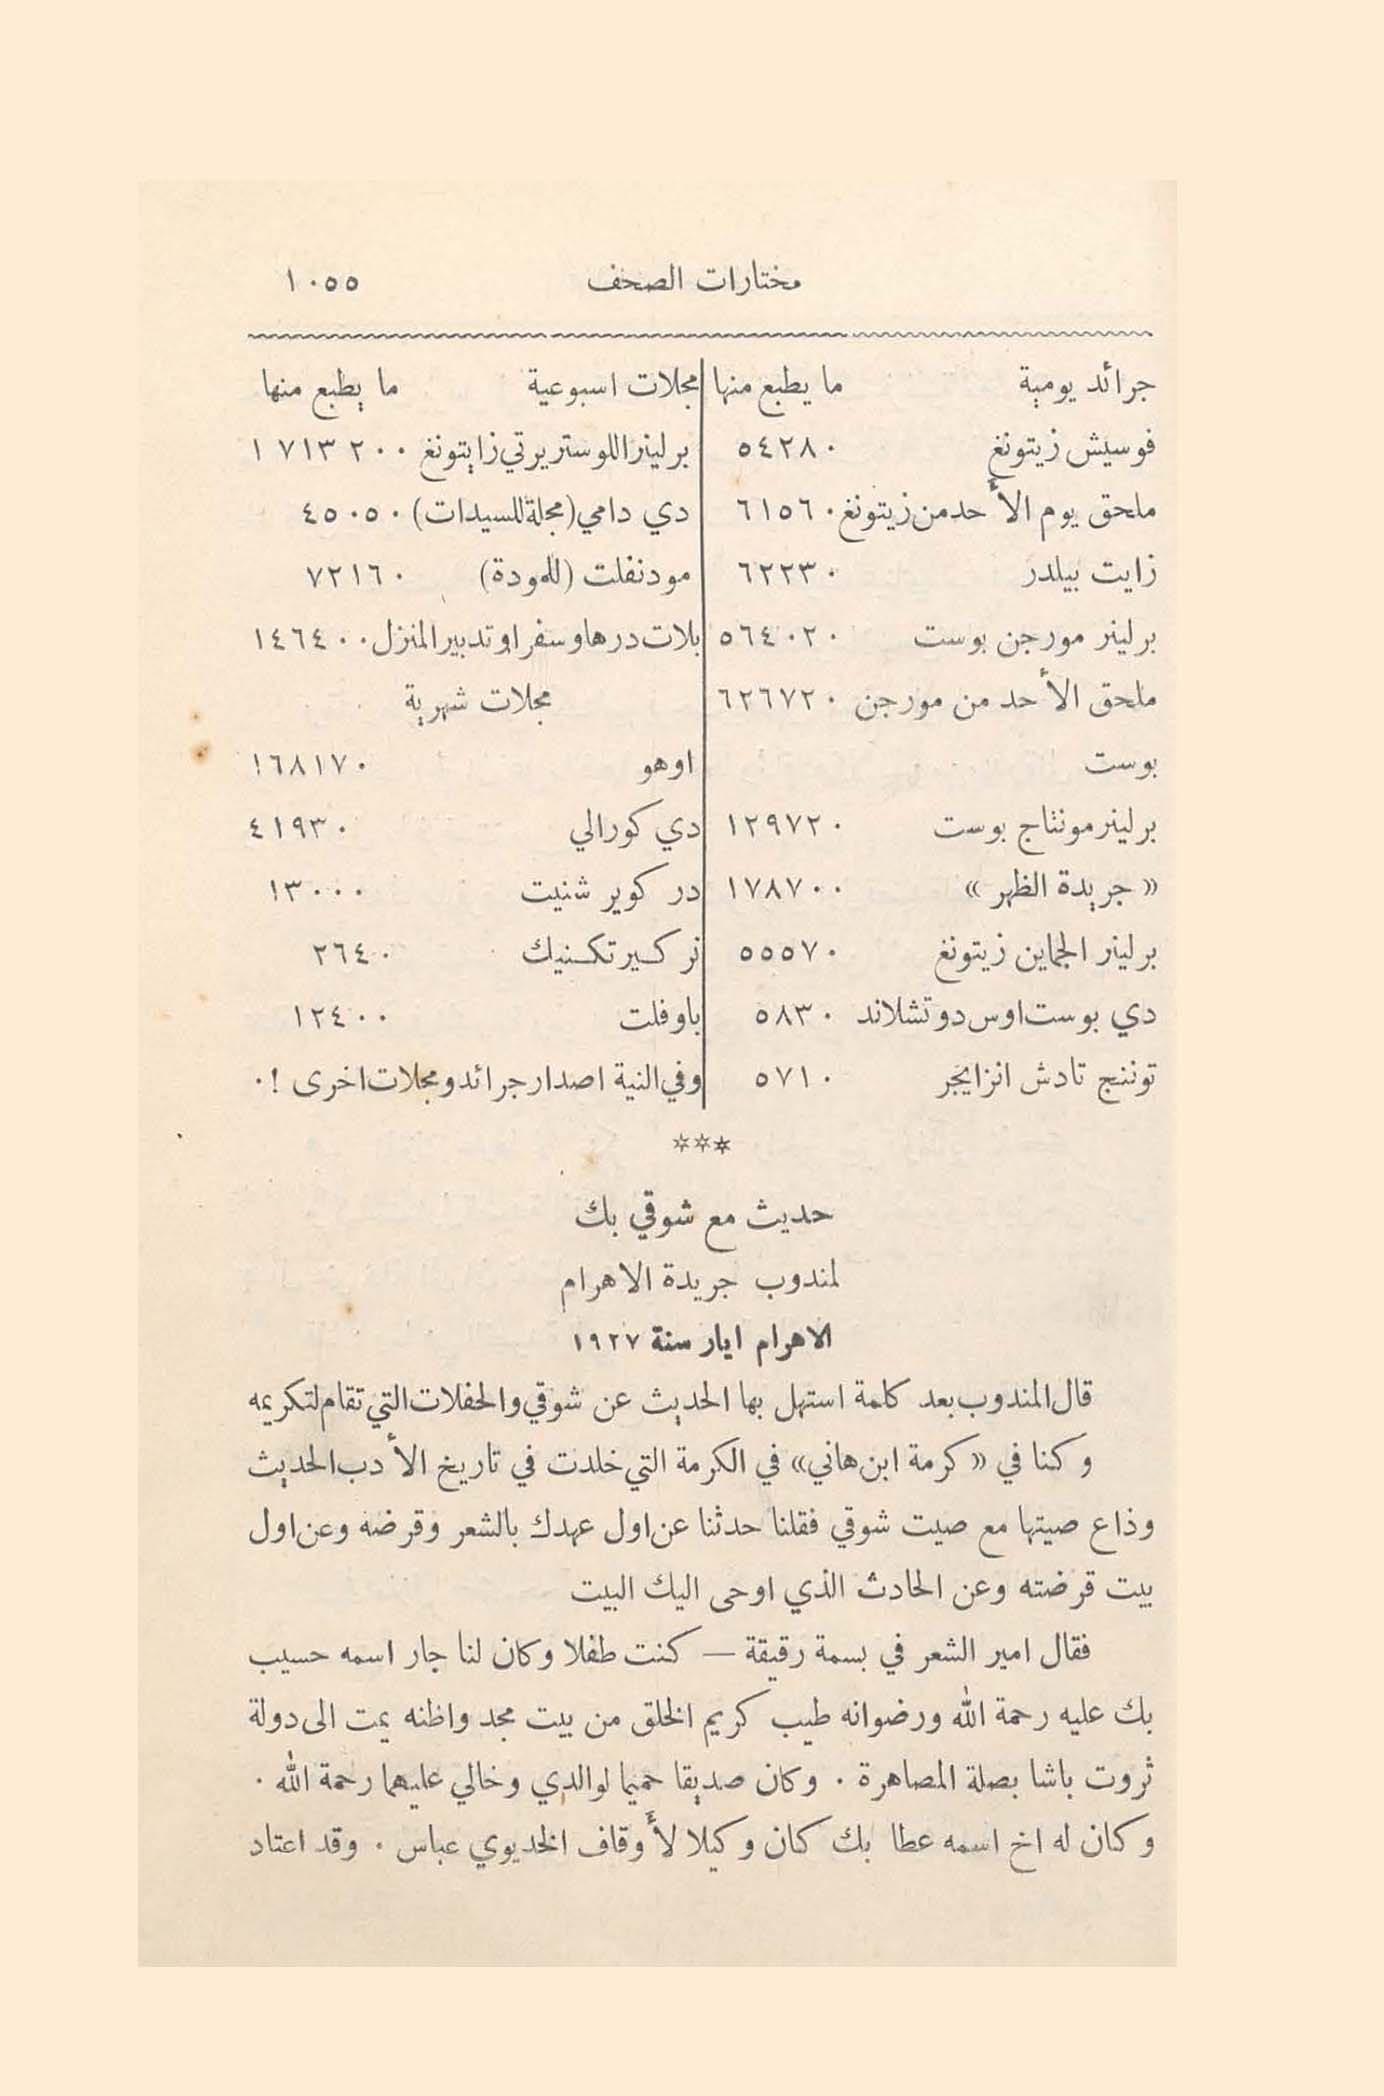 مختارات الصحف ١٠٥٥
جرائد يومية ما يطبع منها
فوسيش زيتونغ ٥٤٢٨٠
ملحق يوم الأحد من زيتونغ ٦١٥٦٠
زايت بيلدر ٦٢٢٣٠
برلينر مورجن بوست ٥٦٤٠٢٠
ملحق الأحد من مورجن ٦٢٦٧٢٠
بوست
برلينر مونتاج بوست ١٢٩٧٢٠
« جريدة الظهر » ١٧٨٧٠٠
برلينر الجماين زيتونغ ٥٥٥٧٠
دي بوست اوس دوتشلاند ٥٨٣٠
توننج تادش انزايجر ٥٧١٠
مجلات اسبوعية ما يطبع منها
برلينر اللوستريرتي زايتونغ ١٧١٣٢٠٠
دي دامي (مجلة للسيدات) ٤٥٠٥٠
مودنفلت (للمودة) ٧٢١٦٠
بلات درهاوسفراو تدبير المنزل ١٤٦٤٠٠
مجلات شهرية
اوهو ١٦٨١٧٠
دي كورالي ٤١٩٣٠
در كوير شنيت ١٣٠٠٠
نر كسير تكنيك ٢٦٤٠
باوفلت ١٢٤٠٠
وفي النية اصدار جرائد ومجلات اخرى ! .
***
حديث مع شوقي بك
لمندوب جريدة الاهرام
الاهرام ايار سنة ١٩٢٧
قال المندوب بعد كلمة استهل بها الحديث عن شوقي والحفلات التي تقام لتكريمه
وكنا في « كرمة ابن هاني » في الكرمة التي خلدت في تاريخ الأدب الحديث
وذاع صيتها مع صيت شوقي فقلنا حدثنا عن اول عهدك بالشعر وقرضه وعن اول
بيت قرضته وعن الحادث الذي اوحى اليك البيت
فقال امير الشعر في بسمة رقيقة — كنت طفلا وكان لنا جار اسمه حسيب
بك عليه رحمة الله ورضوانه طيب كريم الخلق من بيت مجد واظنه يمت الى دولة
ثروت باشا بصلة المصاهرة . وكان صديقا حميما لوالدي وخالي عليهما رحمة الله .
وكان له اخ اسمه عطا بك كان وكيلا لأوقاف الخديوي عباس . وقد اعتاد